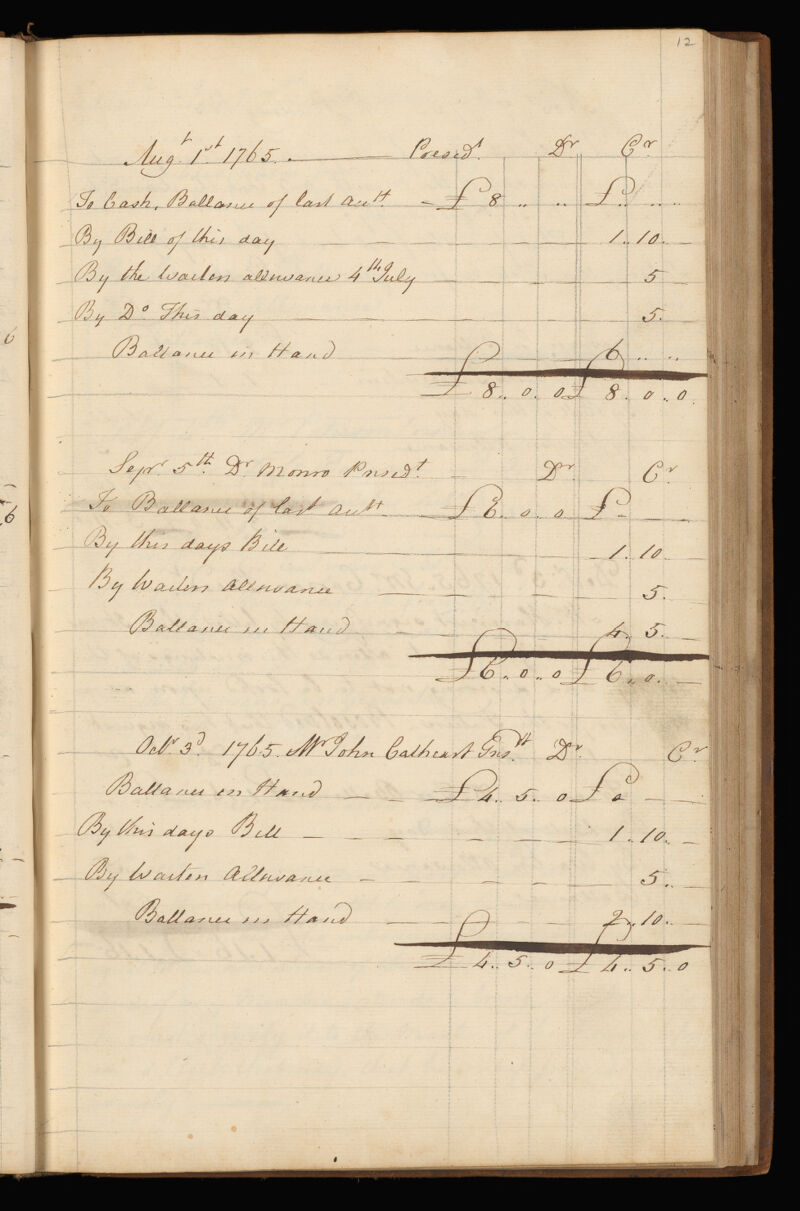 12
Augt. 1st 1765. Presedt. Dr Cr
To Cash, Ballance of last Autt. £ 8 .. .. £ .. .. ..
By Bill of this day 1.. 10. —
By the Waiters allowance 4th July 5 —
By Do. This day 5.
Ballance in Hand 6 .. ..
£ 8.. 0. 0 £ 8. 0.. 0.
Sepr. 5th. Dr Monro Presedt Dr Cr
To Ballance of last Autt £6. 0.. 0 £ —
By this days Bill 1. 10 —
By Waiters Allowance 5.
Ballance in Hand 4. 5. —
£6.. 0.. 0 £ 6.. 0. —
Octr 3d. 1765. Mr John Cathcart Dr. Cr
Ballance in Hand £4. 5. 0 £ 0 —
By this days Bill 1.. 10. —
By Waiters Allowance 5.. —
Ballance in Hand 2.. 10. —
£ 4.. 5. 0 £ 4.. 5. 0
6
6